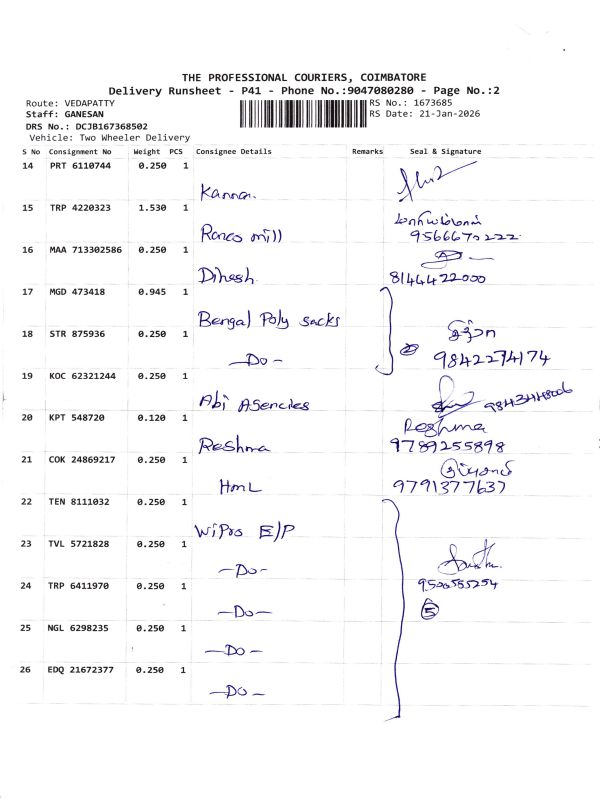 THE PROFESSIONAL COURIERS, COIMBATORE
Delivery Runsheet - P41 - Phone No.:9047080280 - Page No.:2
Route: VEDAPATTY
RS No.: 1673685
Staff: GANESAN
RS Date: 21-Jan-2026
DRS No.: DCJB167368502
Vehicle: Two Wheeler Delivery
S No Consignment No Weight PCS Consignee Details Remarks Seal & Signature
14 PRT 6110744 0.250 1
Kannan.
15 TRP 4220323 1.530 1
Ranco mill
9566670222
16 MAA 713302586 0.250 1
Dinesh
8144422000
17 MGD 473418 0.945 1
Bengal Poly sacks
18 STR 875936 0.250 1
—Do— ② 9842274174
19 KOC 62321244 0.250 1
Abi Agencies
20 KPT 548720 0.120 1
Reshma
Reshma 9789255898
21 COK 24869217 0.250 1
HmL 9791377637
22 TEN 8111032 0.250 1
Wipro E/P
23 TVL 5721828 0.250 1
—Do—
24 TRP 6411970 0.250 1
9500585254
—Do— ⑤
25 NGL 6298235 0.250 1
—Do—
26 EDQ 21672377 0.250 1
—Do—